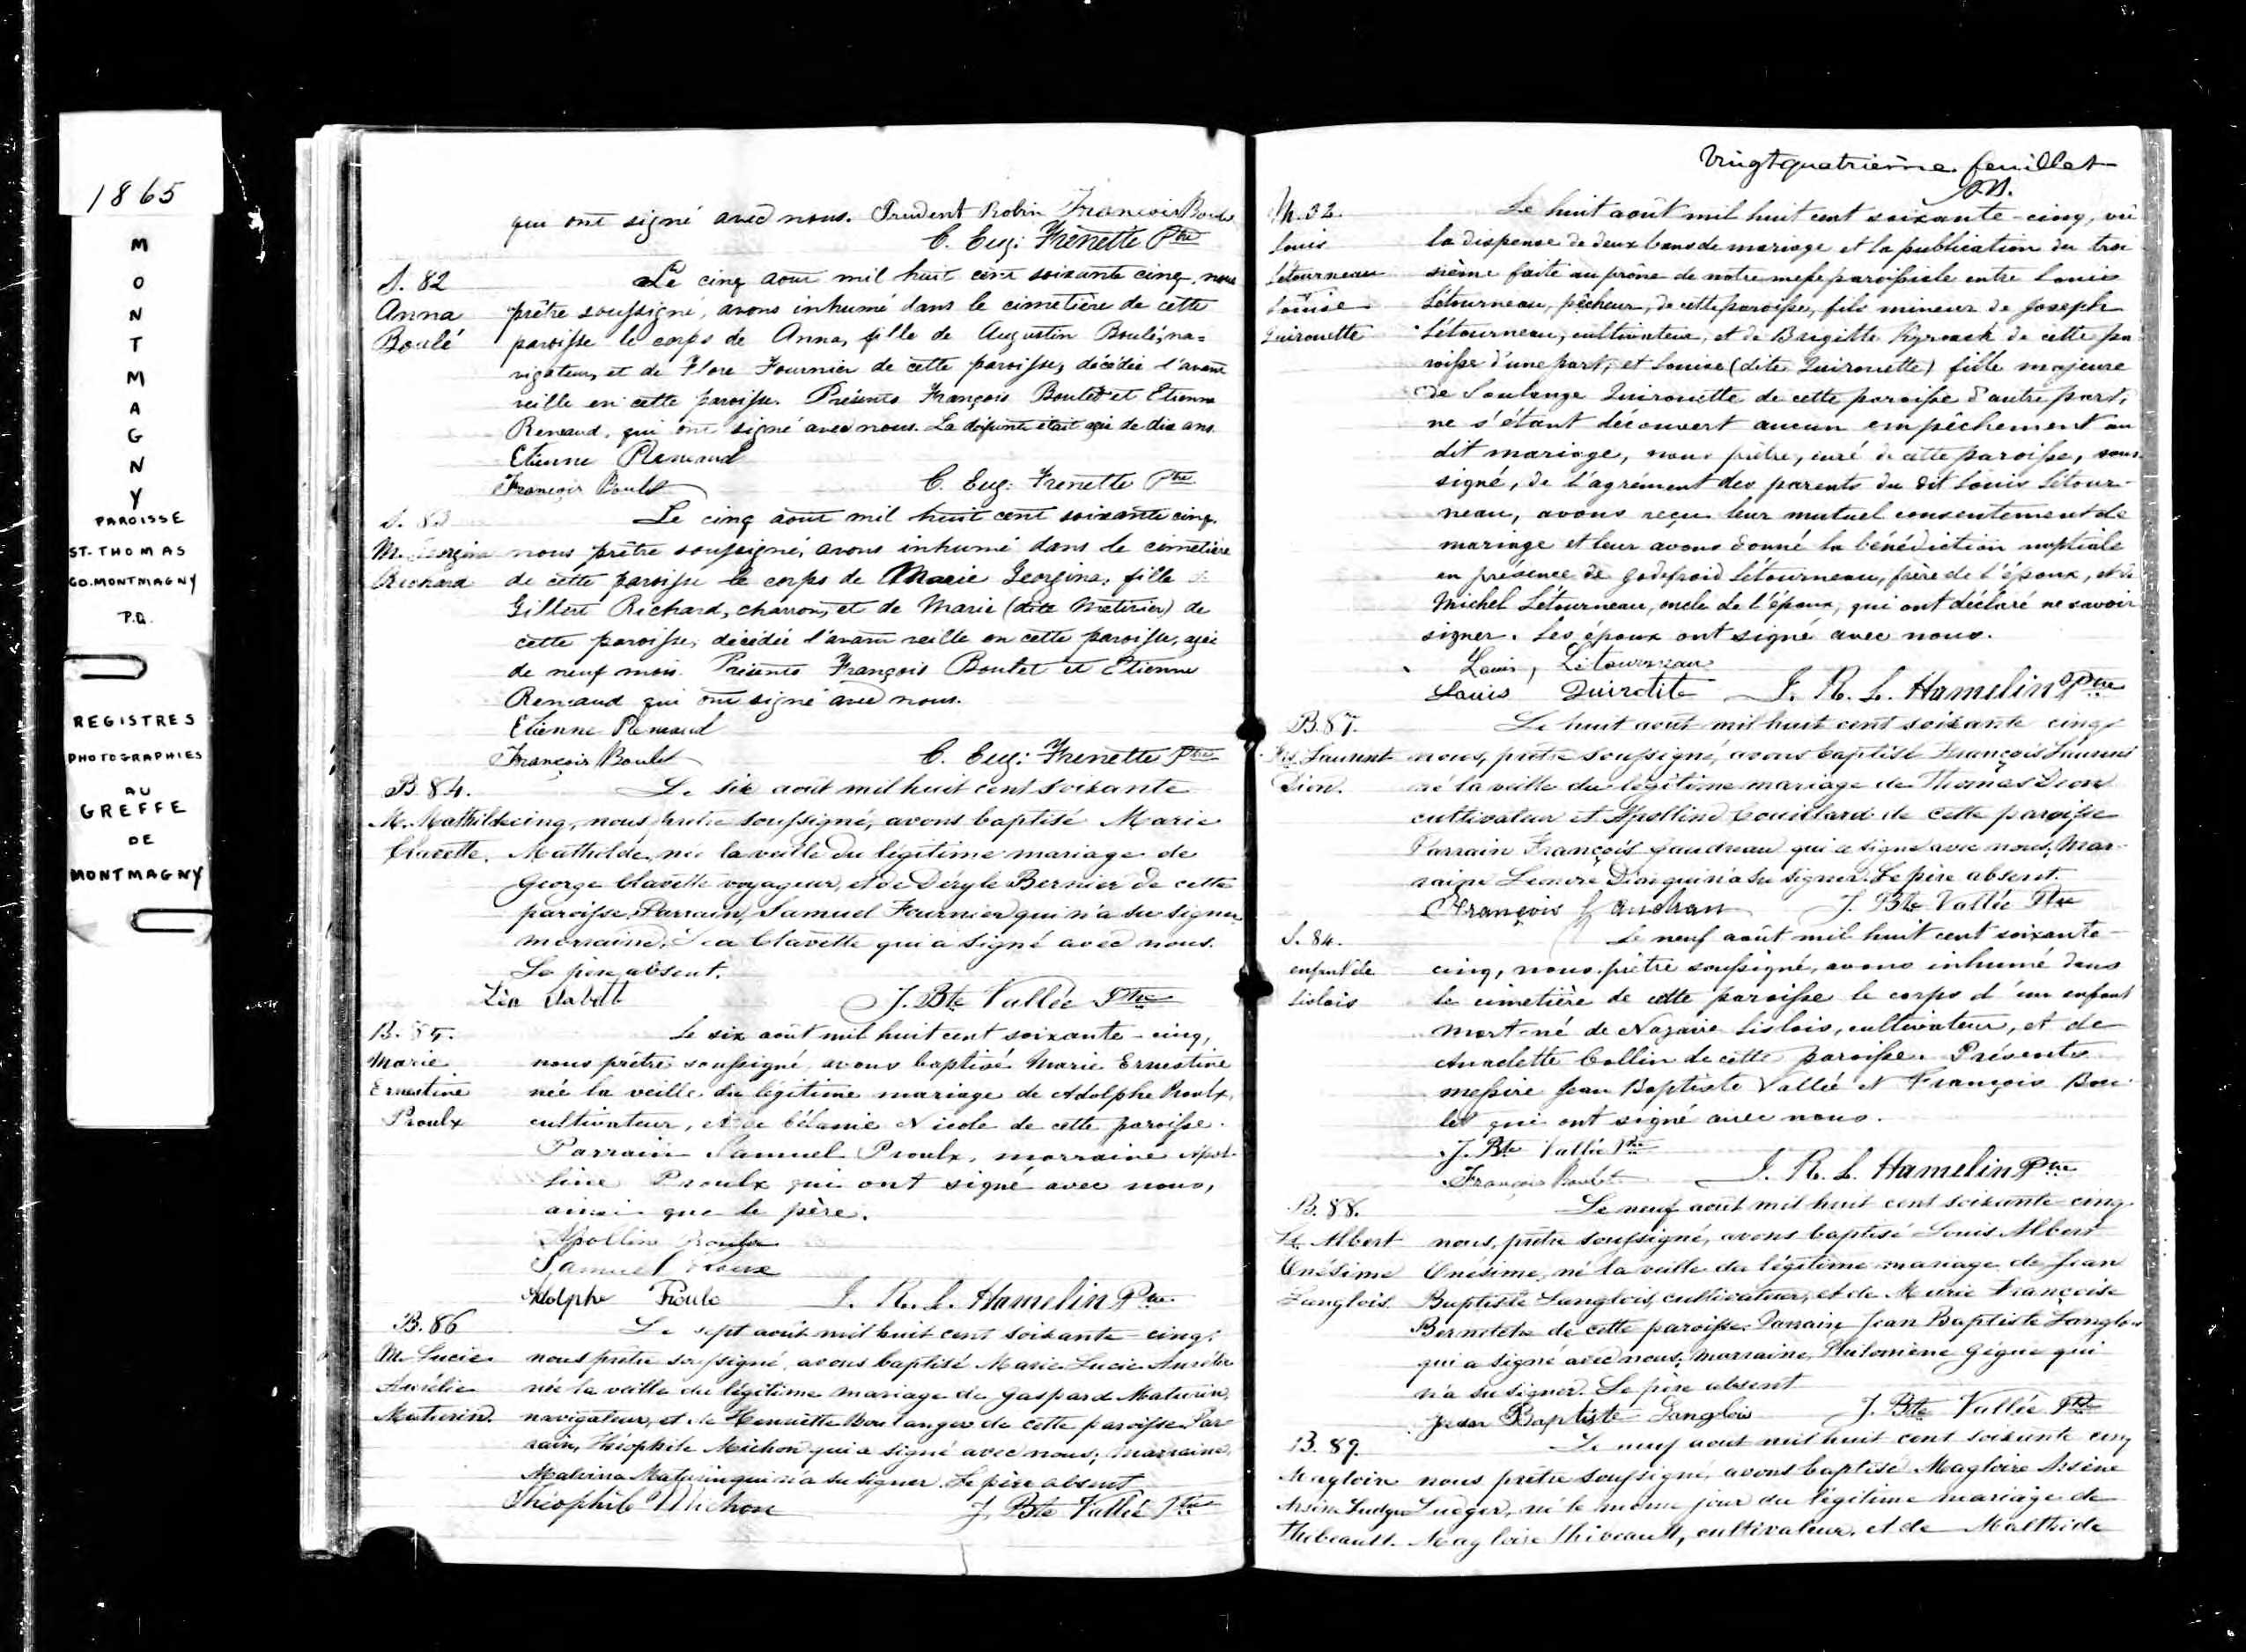 1865
M
O
N
T
M
A
G
N
Y
PAROISSE
ST-THOMAS
CO.MONTMAGNY
P.Q.
REGISTRES
PHOTOGRAPHIES
AU
GREFFE
DE
MONTMAGNY
qui ont signé avec nous. Prudent Robin François Boulet
C. Eug: Frenette Ptre
S. 82
Anna
Boulé
Le cinq aout mil huit cent soixante cinq, nous
prêtre soussigné, avons inhumé dans le cimetière de cette
paroisse le corps de Anna, fille de Augustin Boulé, na=
vigateur, et de Flore Fournier de cette paroisse, décédée l'avant
veille en cette paroisse. Présents François Boulet et Etienne
Renaud, qui ont signé avec nous. La défunte était agée de dix ans.
Etienne Renaud
François Boulet
C. Eug: Frenette Ptre
S. 83
M. Georgina
Richard
Le cinq aout mil huit cent soixante cinq,
nous prêtre soussigné, avons inhumé dans le cimetière
de cette paroisse le corps de Marie Georgina, fille de
Gilbert Richard, charron, et de Marie (dite Maturin) de
cette paroisse, décédée l'avant veille en cette paroisse, agée
de neuf mois. Présents François Boulet et Etienne
Renaud qui ont signé avec nous.
Etienne Renaud
François Boulet
C. Eug: Frenette Ptre
B. 84.
M. Mathilde
Clavette.
Le six août mil huit cent soixante
cinq, nous prêtre soussigné, avons baptisé Marie
Mathilde, née la veille du légitime mariage de
George Clavette voyageur, et de Béryle Bernier de cette
paroisse. Parrain, Samuel Fournier qui n'a su signer,
marraine, Léa Clavette qui a signé avec nous.
Le père absent.
Léa
J. Bte Vallée Ptre
B. 85.
Marie
Ernestine
Proulx
Le six août mil huit cent soixante-cinq,
nous prêtre soussigné, avons baptisé Marie Ernestine
née la veille du légitime mariage de Adolphe Proulx,
cultivateur, et de Célanie Nicole de cette paroisse.
Parrain Samuel Proulx, marraine Apol-
line Proulx qui ont signé avec nous,
ainsi que le père.
Apolline Proulx
Samuel Proulx
Adolphe Proulx
J. R. L. Hamelin Ptre
B. 86
M. Lucie
Aurélie
Maturin.
Le sept août mil huit cent soixante-cinq,
nous prêtre soussigné, avons baptisé Marie Lucie Aurélie
née la veille du légitime mariage de Gaspard Maturin,
navigateur, et de Henriette Boulanger de cette paroisse. Par
rain, Théophile Michon qui a signé avec nous; marraine,
Malvina Maturin qui n'a su signer. Le père absent
Théophile Michon
J. Bte Vallée Ptre
Vingtquatrième feuillet
M. 32.
Louis
Létourneau
Louise
Quirouette
Le huit août mil huit cent soixante-cinq, vu
la dispense de deux bans de mariage et la publication du troi
sième faite au prône de notre messe paroissiale entre Louis
Létourneau, pêcheur, de cette paroisse, fils mineur de Joseph
Létourneau, cultivateur, et de Brigitte Kyrouack de cette pa
roisse d'une part; et Louise (dite Quirouette) fille majeure
de Soulange Quirouette de cette paroisse d'autre part;
ne s'étant découvert aucun empêchement au
dit mariage, nous prêtre, curé de cette paroisse, sous-
signé, de l'agrément des parents du dit Louis Létour-
neau, avons reçu leur mutuel consentement de
mariage et leur avons donné la bénédiction nuptiale
en présence de Godefroid Létourneau, frère de l'époux, et de
Michel Létourneau, oncle de l'époux, qui ont déclaré ne savoir
signer. Les époux ont signé avec nous.
Louis, Létourneau
Louis Quirotite
J. R. L. Hamelin Ptre
B. 87.
Frs. Laurent
Dion.
Le huit août mil huit cent soixante cinq
nous, prêtre soussigné, avons baptisé François Laurent
né la veille du légitime mariage de Thomas Dion
cultivateur et Apolline Couillard de cette paroisse
Parrain François Gaudreau qui a signé avec nous, Mar-
raine Leonore Dion qui n'a su signer. Le père absent.
François Gaudrau
J. Bte Vallée Ptre
S. 84.
enfant de
Lislois
Le neuf août mil huit cent soixante-
cinq, nous prêtre soussigné, avons inhumé dans
le cimetière de cette paroisse le corps d'un enfant
mort-né de Nazaire Lislois, cultivateur, et de
Anaclette Collin de cette paroisse. Présents
messire Jean Baptiste Vallée et François Bou-
let qui ont signé avec nous.
J. Bte Vallée Ptre
François Boulet
J. R. L. Hamelin Ptre
B. 88.
Ls. Albert
Onésime
Langlois.
Le neuf août mil huit cent soixante cinq
nous, prêtre soussigné, avons baptisé Louis Albert
Onésime, né la veille du légitime mariage de Jean
Baptiste Langlois, cultivateur, et de Marie Françoise
Bernatchez de cette paroisse. Parrain Jean Baptiste Langlois
qui a signé avec nous; marraine, Philomène Gegue qui
n'a su signer. Le père absent
Jean Baptiste Langlois
J. Bte Vallée Ptre
B. 89.
Magloire
Arsène Ludger
Thibeault.
Le neuf août mil huit cent soixante cinq
nous prêtre soussigné, avons baptisé Magloire Arsène
Ludger, né le même jour du légitime mariage de
Magloire Thibeault, cultivateur, et de Mathilde